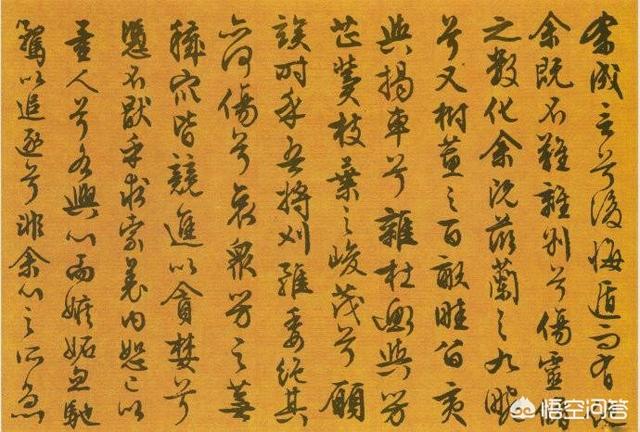 余成言兮後悔遁而有他
余既不難離別兮傷靈脩
之數化余既滋蘭之九畹
兮又樹蕙之百畝畦留夷
與揭車兮雜杜衡與芳
芷冀枝葉之峻茂兮願
竢時乎吾將刈雖萎絕其
亦何傷兮哀眾芳之蕪
穢眾皆競進以貪婪兮
憑不猒乎求索羌內恕己以
量人兮各興心而嫉妒忽馳
騖以追逐兮非余心之所急
悟空问答